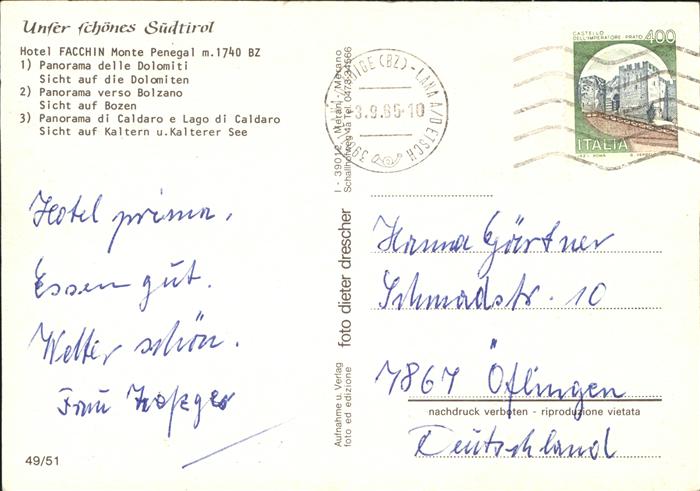 Unser schönes Südtirol
Hotel FACCHIN Monte Penegal m.1740 BZ
1) Panorama delle Dolomiti
Sicht auf die Dolomiten
2) Panorama verso Bolzano
Sicht auf Bozen
3) Panorama di Caldaro e Lago di Caldaro
Sicht auf Kaltern u.Kalterer See
Hotel prima,
Essen gut.
Wetter schön.
Frau
49/51
I - 39012 Meran - Merano
Schallhofweg 4a Tel. 0473-34566
foto dieter drescher
Aufnahme u. Verlag
foto ed edizione
(BZ) - LANA A/D ETSCH
3.9.85-10
CASTELLO
DELL'IMPERATORE PRATO
400
ITALIA
Hanna Gärtner
Schmadstr. 10
7867 Öflingen
nachdruck verboten - riproduzione vietata
Deutschland